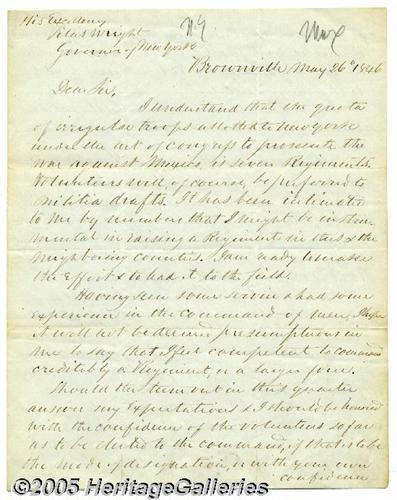 His Excellency
Silas Wright
Governor of New York
N.Y
Brownville May 26th 1846
Dear Sir,
I understand that the quota
of irregular troops allotted to New York
under the act of congress to prosecute the
war against Mexico, is seven Regiments.
Volunteers will, of course, be preferred to
militia drafts. It has been intimated
to me by numbers that I might be instru-
mental in raising a Regiment in this & the
neighboring counties. I am ready to make
the effort & to lead it to the field.
Having seen some service & had some
experience in the command of men, I hope
it will not be deemed presumptuous in
me to say that I feel competent to command
creditably a Regiment or a larger force.
Should the turn out in this quarter
answer my expectations & I should be honored
with the confidence of the volunteers so far
as to be elected to the command, if that is to be
the mode of designation, or with your own
confidence
©2005 HeritageGalleries